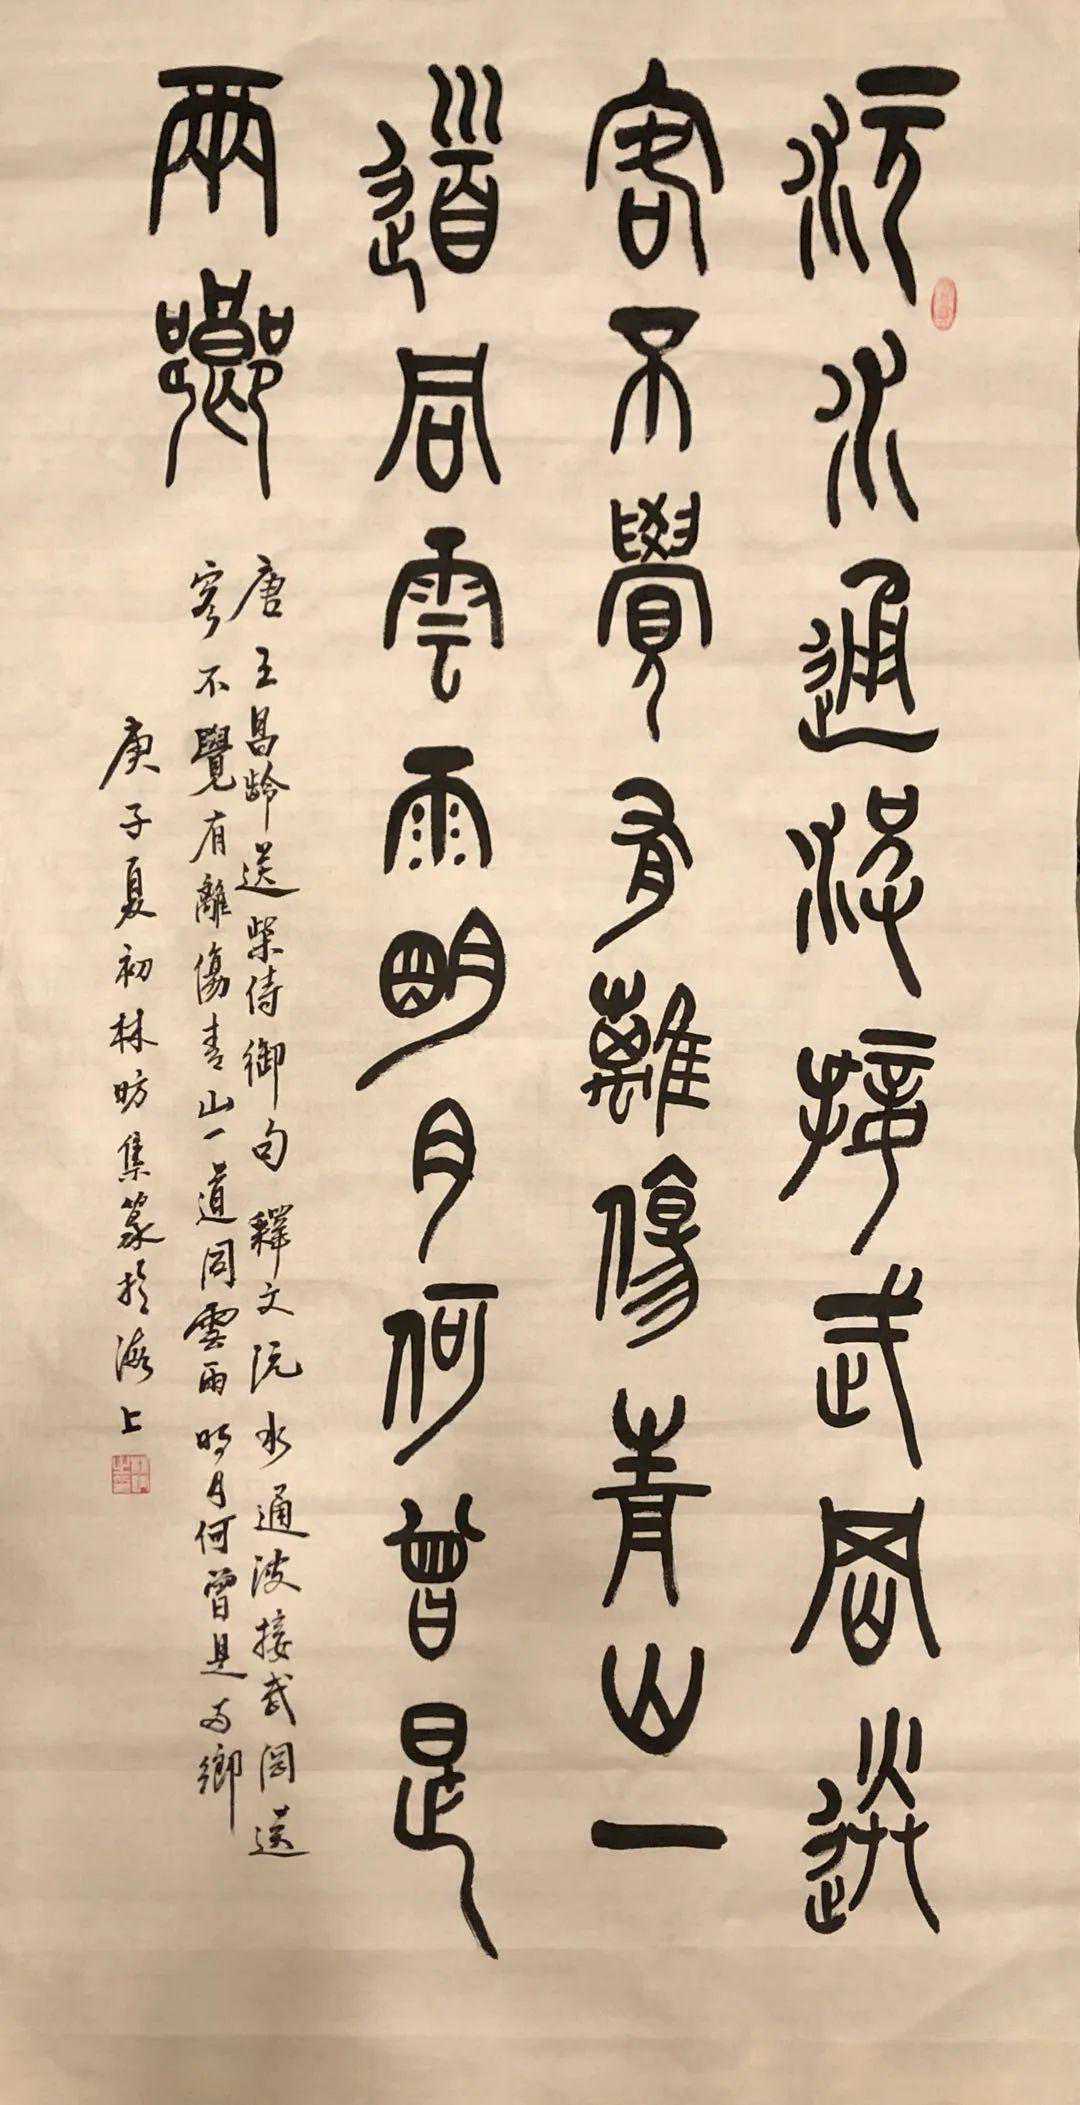 沅水通波接武冈送
客不覺有離傷青山一
道同雲雨明月何曾是
兩鄉
唐王昌龄送柴侍御句 釋文沅水通波接武岡送
客不覺有離傷青山一道同雲雨明月何曾是两鄉
庚子夏初林昉集篆於海上